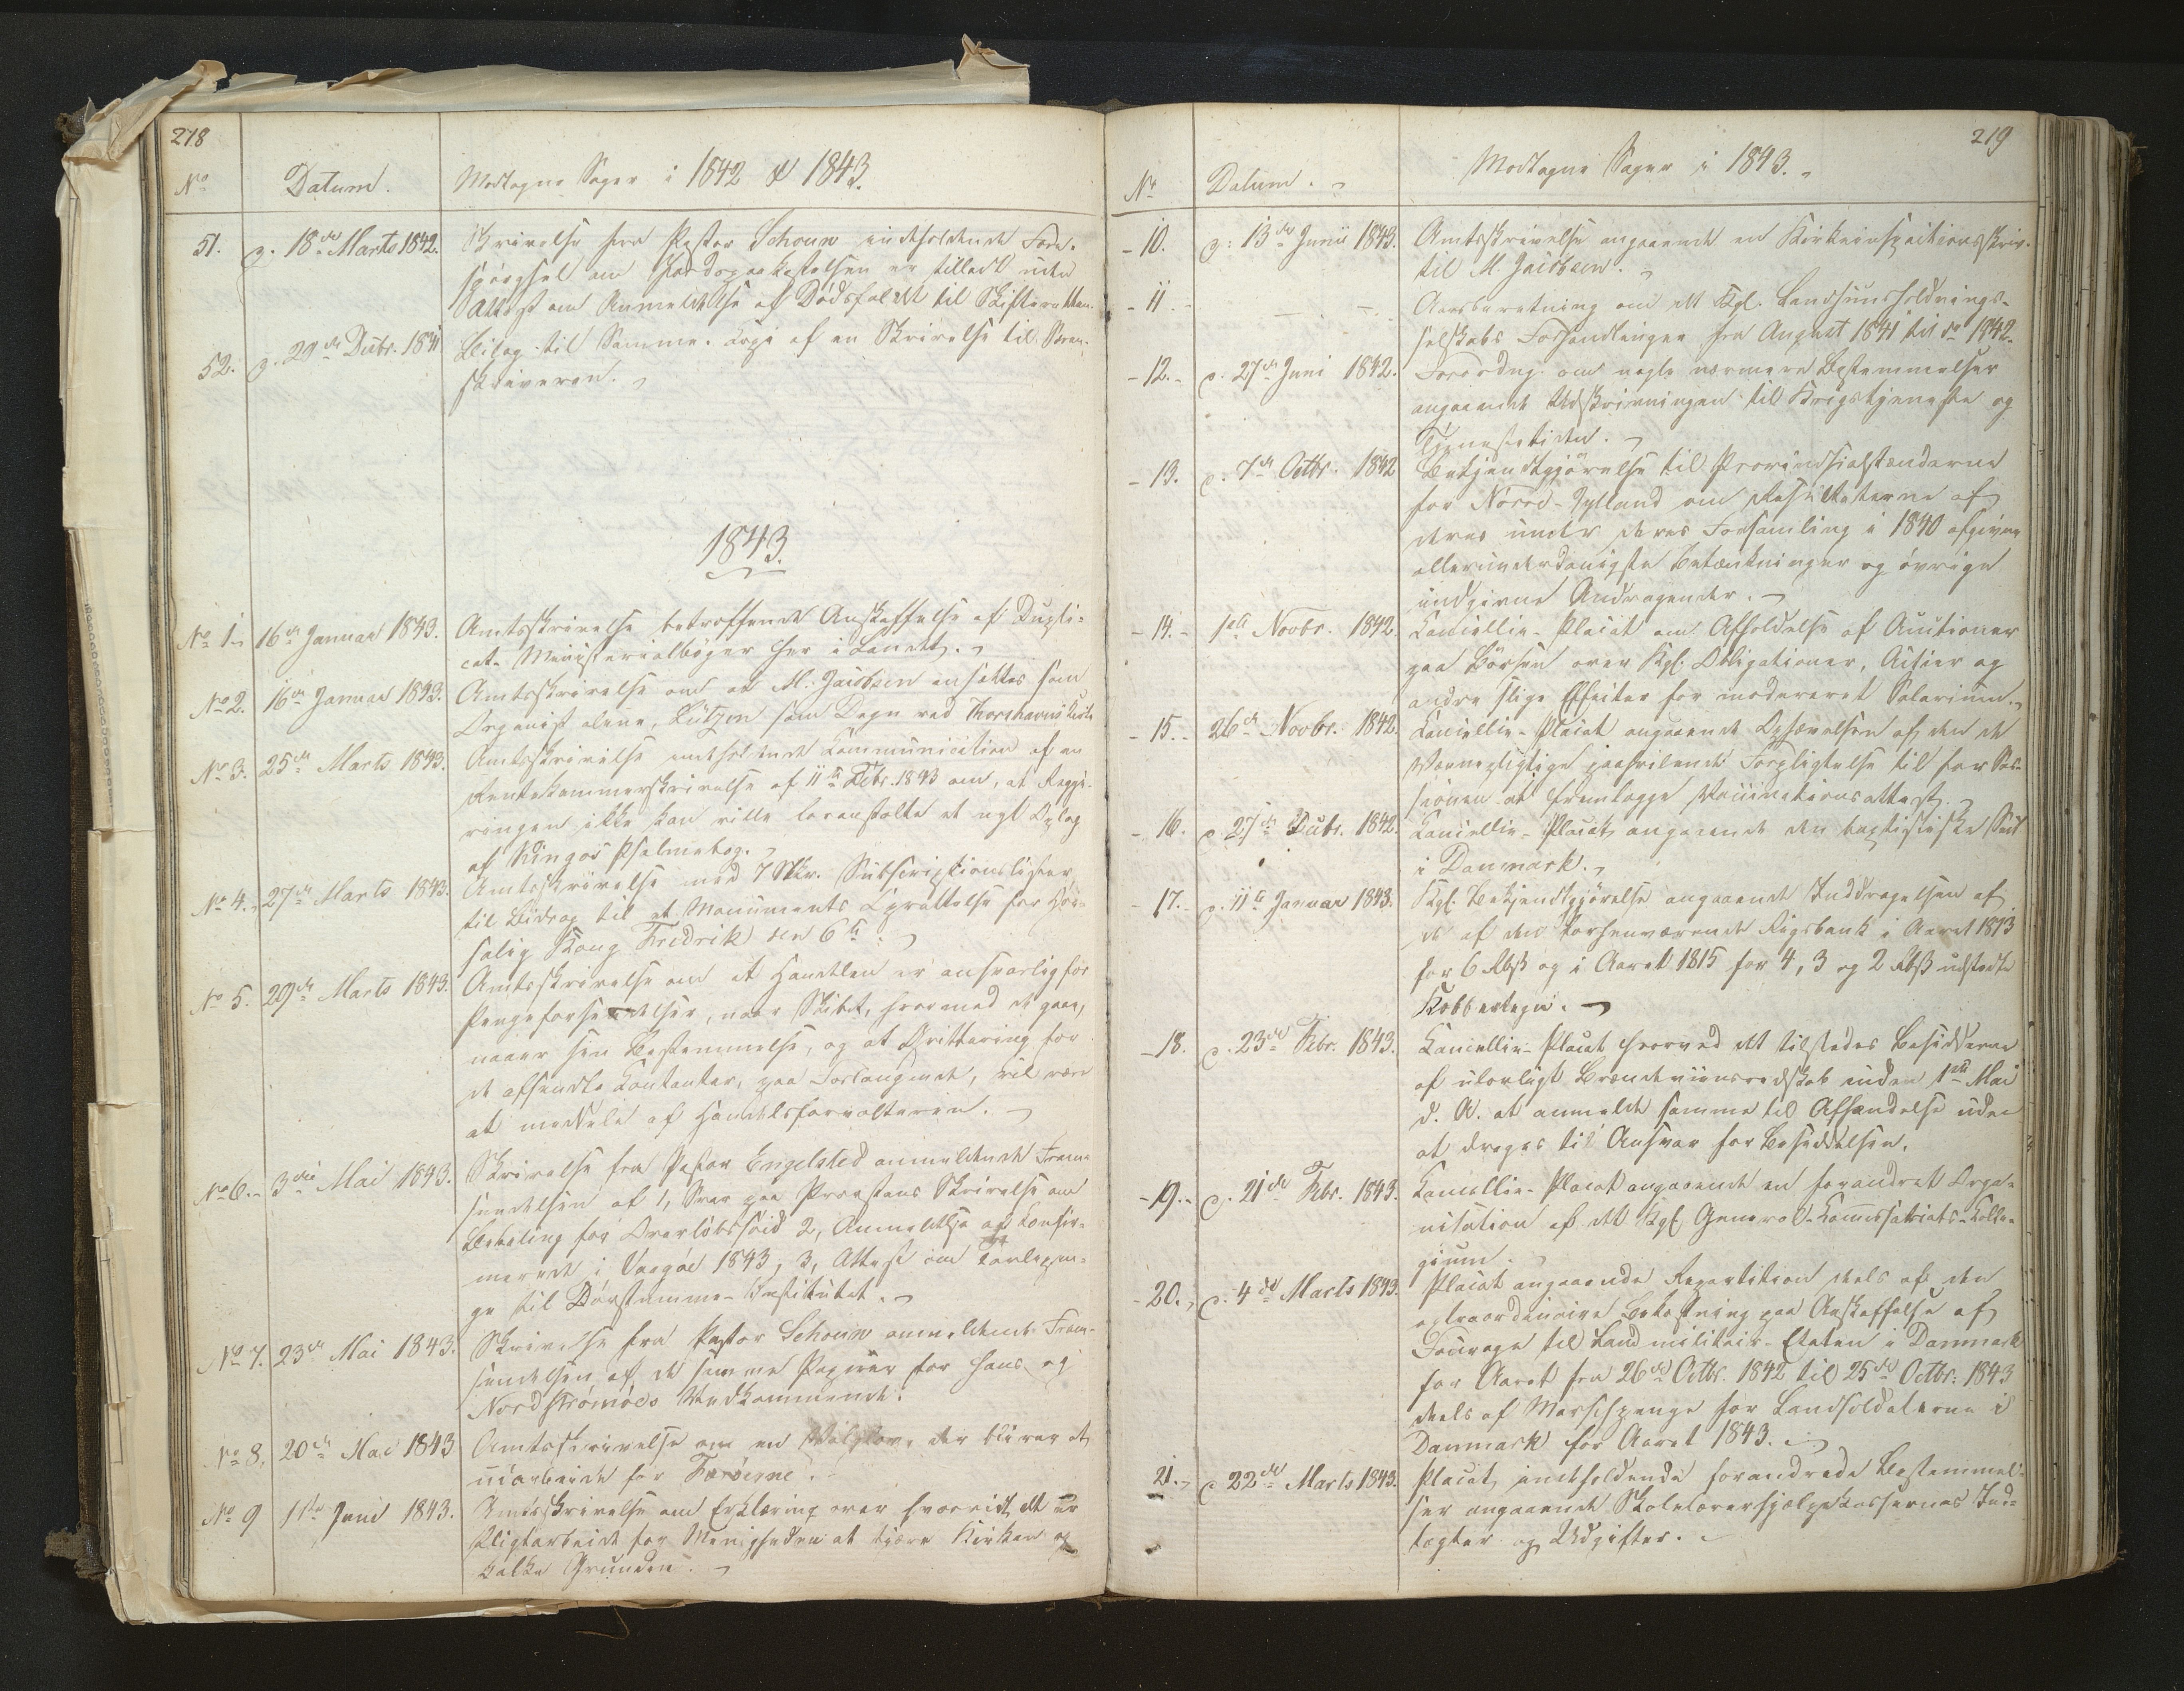 218
No Datum. Modtagne Sager i 1842 & 1843.
51. p. 18de Marts 1842. Skrivelse fra Pastor Schoun indeholdende Fore-
spørgsel om Jordspaakastelsen er tilladt uden
Attest om Anmeldelse af Dødsfaldet til Skifteretten.
52. p. 29de Decbr. 1841 Bilag til Samme. Copi af en Skrivelse til Soren-
skriveren.
1843.
No 1. 16de Januar 1843. Amtsskrivelse betreffende Anskaffelse af Dupli-
cat-Ministerialbøger her i Landet.
No 2. 16de Januar 1843. Amtsskrivelse om at M. Jacobsen ansættes som
Organist alene, Lützen som Degn ved Thorshavns Kirke
No 3. 25de Marts 1843. Amtsskrivelse indeholdende Communication af en
Rentekammerskrivelse af 11te Febr. 1843 om, at Regje-
ringen ikke kan ville foranstalte et nyt Oplag
af Kingos Psalmebog.
No 4. 27de Marts 1843. Amtsskrivelse med 7 Stkr. Subscriptionslister
til Bidrag til et Monuments Oprettelse for Høi-
salig Kong Fredrik den 6te
No 5. 29de Marts 1843. Amtsskrivelse om at Handelen er ansvarlig for
Pengeforsendelser, naar Skibet, hvormed de gaae,
naaer sin Bestemmelse, og at Qvittering for
de afsendte Contanter, paa Forlangende, vil være
at meddele af Handelsforvalteren.
No 6. 3die Mai 1843. Skrivelse fra Pastor Engelsted anmeldende Frem-
sendelsen af 1, Svar paa Provstens Skrivelse om
Betaling for 2, Anmeldelse af Confir-
merede i Vaagøe 1843, 3, Attest om
ge til Døvstumme-Institutet.
No 7. 23de Mai 1843. Skrivelse fra Pastor Schoun anmeldende Frem-
sendelsen af de samme Papirer for Hans og
Nordstrømøes Vedkommende.
No 8. 20de Mai 1843 Amtsskrivelse om en der bliver at
udarbeide for Færøerne.
No 9 1ste Juni 1843. Amtsskrivelse om Erklæring over hvorvidt det er
Pligtarbeide for Menigheden at tjære Kirken og
kalke Grunden.
219
No Datum. Modtagne Sager i 1843.
- 10. p: 13de Junii 1843. Amtsskrivelse angaaende en Kirkeinspectionsskriv.
til M. Jacobsen.
- 11. - - Aarsberetning om det Kgl. Landhuusholdnings-
selskabs Forhandlinger fra August 1841 til do 1842.
- 12. - p. 27de Juni 1842. Forordng. om nogle nærmere Bestemmelser
angaaende Udskrivningen til Krigstjeneste og
Tjenestetiden.
- 13. p. 7de Octbr. 1842 Bekjendtgjørelse til Provindsialstænderne
for Nørre-Jylland om Resultaterne af
deres under deres Forsamling i 1840 afgivne
allerunderdanigste Betænkninger og øvrige
indgivne Andragender.
- 14. - 1ste Novbr. 1842. Cancellie-Placat om Afholdelse af Auctioner
paa Børsen over Kgl. Obligationer, Actier og
andre slige Effecter for modereret Salarium.
- 15. - 26de Novbr. 1842. Cancellie-Placat angaaende Ophævelsen af den de
Værnepligtige paahvilende Forpligtelse til for Ses-
sionen at fremlægge Vaccinationsattest.
- 16. p. 27de Decbr. 1842. Cancellie-Placat angaaende den baptistiske Sect
i Danmark.
- 17. - p. 11te Januar 1843. Kgl. Bekjendtgjørelse angaaende Inddragelsen af
de af den forhenværende Rigsbank i Aaret 1813
for 6 Rbß og i Aaret 1815 for 4, 3 og 2 Rbß udstedte
Kobbertegn.
- 18. p. 23de Febr. 1843. Cancellie-Placat hvorved det tilstedes Besidderne
af ulovligt Brændeviinsredskab inden 1ste Mai
d. A. at anmelde samme til Afhændelse uden
at drages til Ansvar for Besiddelsen.
- 19. - p. 21de Febr. 1843. Cancellie-Placat angaaende en forandret Orga-
nisation af det Kgl. General-Commissariats-Colle-
gium.
- 20. p. 4de Marts 1843 Placat angaaende Repartition deels af den
extraordinaire Bekostning paa Anskaffelse af
Fourage til Landmilitair-Etaten i Danmark
for Aaret fra 26de Octbr. 1842 til 25de Octbr. 1843
deels af Marschpenge for Landsoldaterne i
Danmark for Aaret 1843.
21. - p 22de Marts 1843. Placat, indeholdende forandrede Bestemmel-
ser angaaende Skolelærerhjælpekassernes Ind-
tægter og Udgifter.